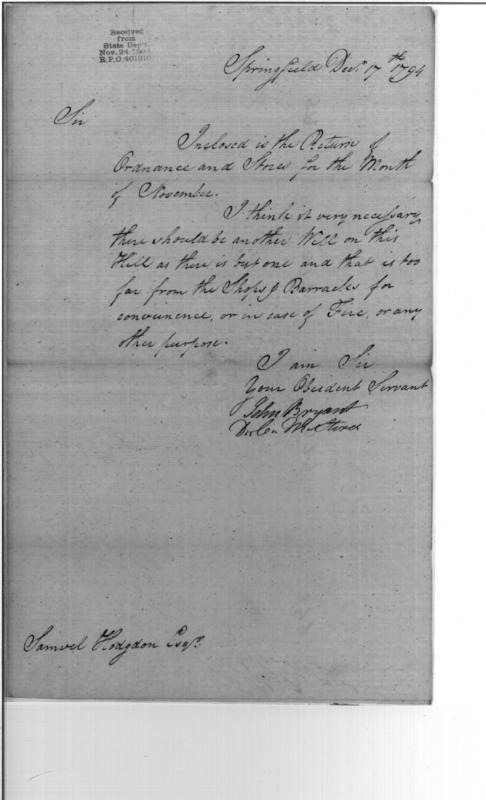 Received
from
State Dept.
Nov. 24,
R.P.O. 401910
Springfield Decr. 17th 1794
Sir
Inclosed is the Return of
Ordnance and Stores for the Month
of November.
I think it very necessary
there should be another Well on this
Hill as there is but one and that is too
far from the Shops & Barracks for
convenience, or in case of Fire, or any
other purpose.
I am Sir
Your Obedient Servant
John Bryant
Stores
Samuel Hodgdon Esqr.